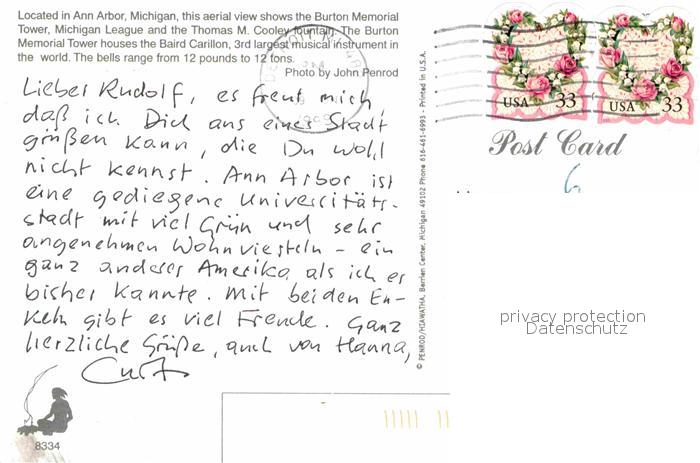 Located in Ann Arbor, Michigan, this aerial view shows the Burton Memorial
Tower, Michigan League and the Thomas M. Cooley fountain. The Burton
Memorial Tower houses the Baird Carillon, 3rd largest musical instrument in
the world. The bells range from 12 pounds to 12 tons.
Photo by John Penrod
Lieber Rudolf, es freut mich,
daß ich Dich aus einer Stadt
grüßen kann, die Du wohl
nicht kennst. Ann Arbor ist
eine gediegene Universitäts-
stadt mit viel Grün und sehr
angenehmen Wohnvierteln - ein
ganz anderes Amerika als ich es
bisher kannte. Mit beiden En-
keln gibt es viel Freude. Ganz
herzliche Grüße, auch von Hanna,
Curt
8334
© PENROD/HIAWATHA, Berrien Center, Michigan 49102 Phone 616-461-6993 - Printed in U.S.A.
USA 33
USA 33
Post Card
privacy protection
Datenschutz